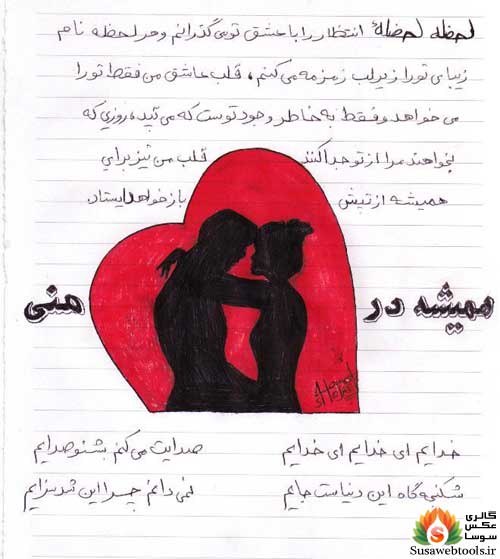 لحظه لحظهٔ انتظار را با عشق تو می گذرانم و هر لحظه نام
زیبای تو را زیر لب زمزمه می کنم، قلب عاشق من فقط تو را
می خواهد و فقط به خاطر وجود توست که می تپد، روزی که
بخواهند مرا از تو جدا کنند قلب من نیز برای
همیشه از تپش باز خواهد ایستاد
همیشه در منی
خدایم ای خدایم ای خدایم صدایت می کنم بشنو صدایم
شکنجه گاه این دنیاست جایم نمی دانم چرا این شد سزایم
گالری
عکس
سوسا
Susawebtools.ir